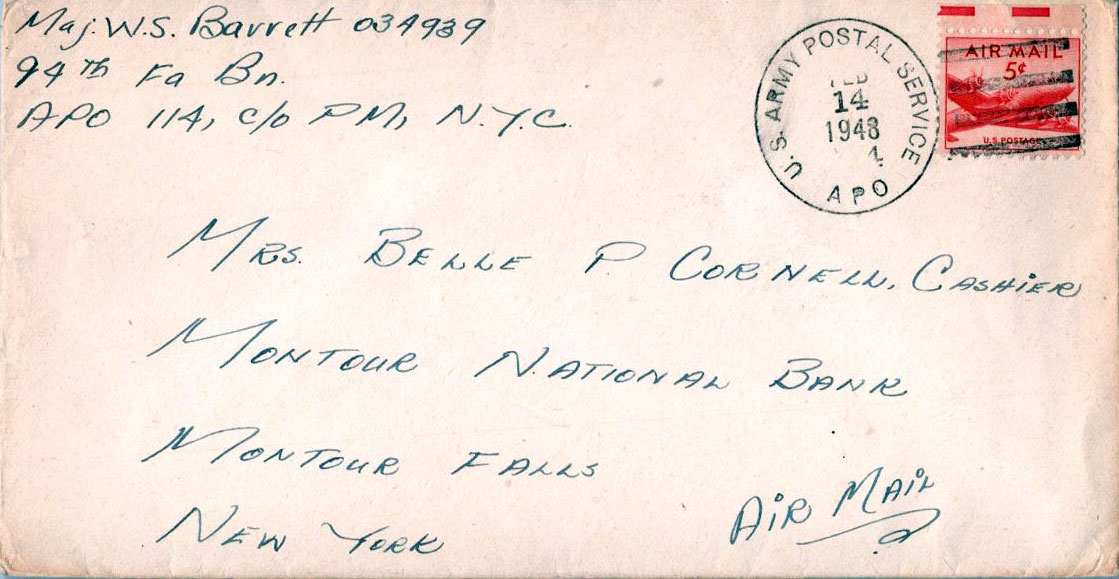 Maj. W.S. Barrett 034939
94th Fa Bn.
APO 114, c/o PM, N.Y.C.
U.S. ARMY POSTAL SERVICE
FEB
14
1948
APO
AIR MAIL
5¢
U.S. POSTAGE
MRS. BELLE P. CORNELL, CASHIER
MONTOUR NATIONAL BANK
MONTOUR FALLS
NEW YORK
AIR MAIL